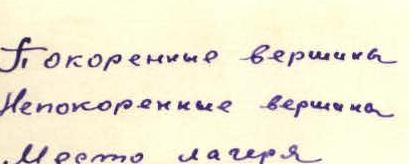 Покоренные вершины
Непокоренные вершины
Место лагеря